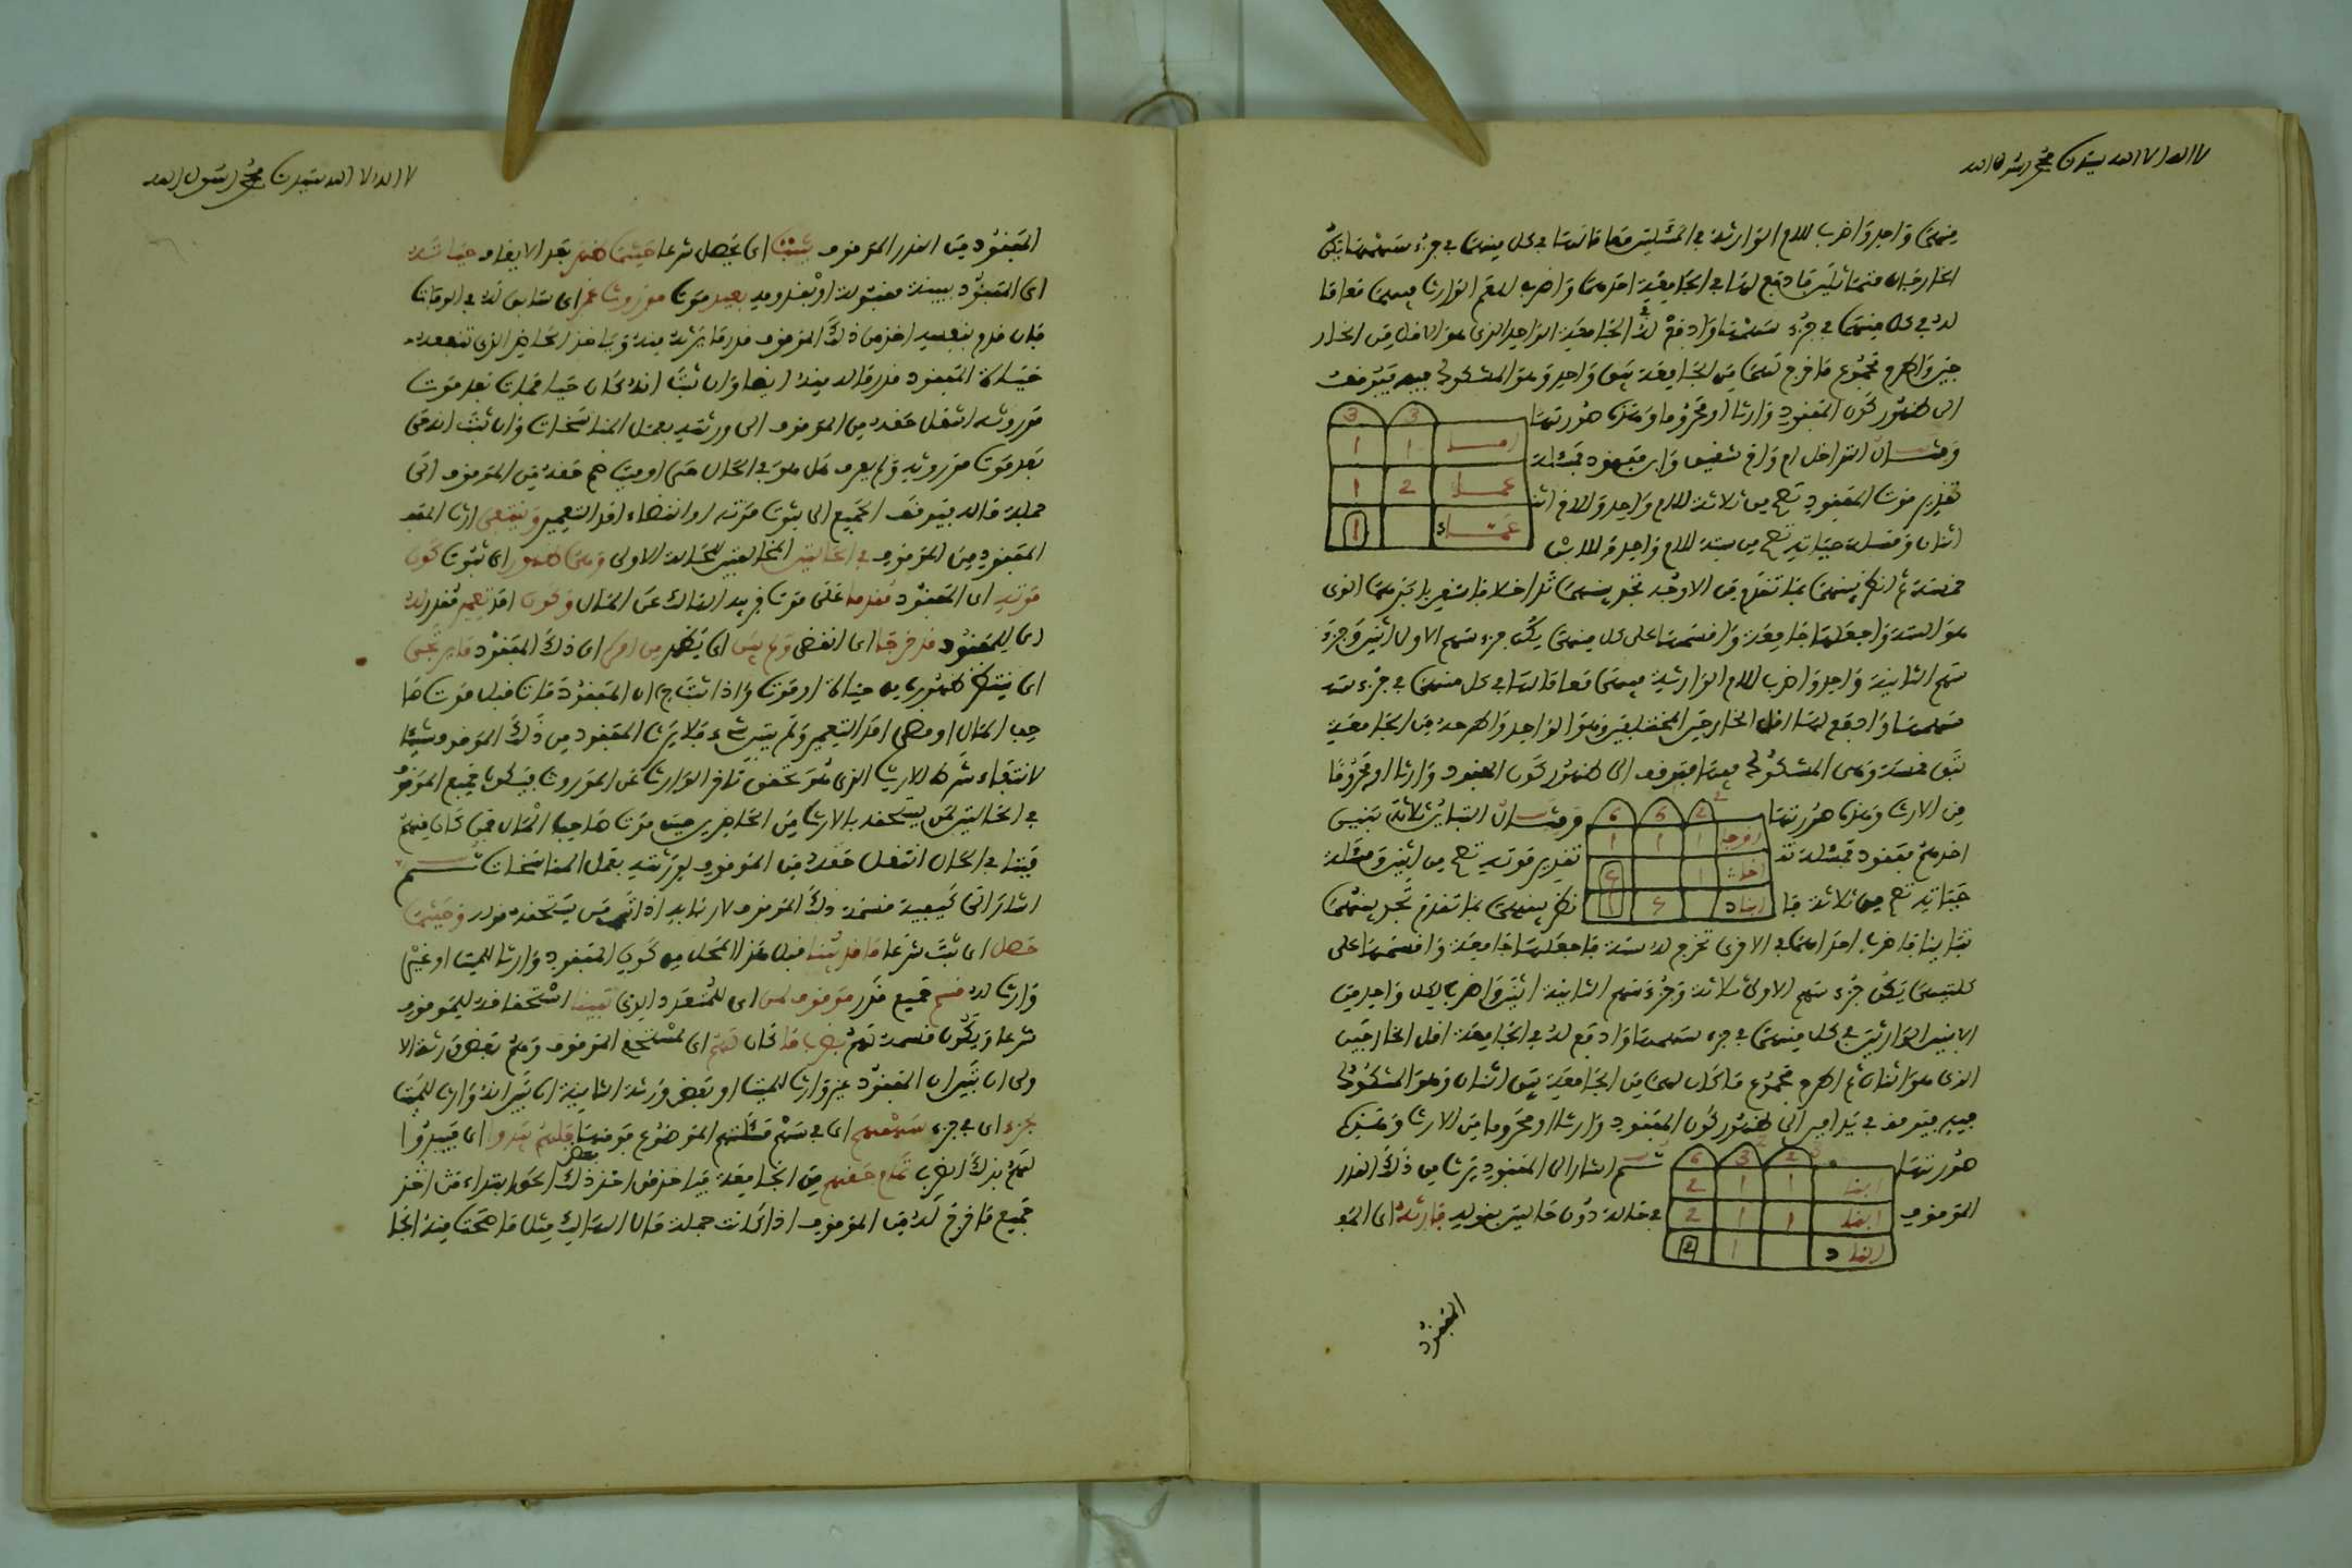 لا اله الا الله سيدنا محمد رسول الله
منهما واحد واضرب للام الوارثة في المسئلتين معا ما لها في كل منهما في جزء سهمها يكن
الخارجان متماثلين فادفع لها في الجامعة احدهما واضرب للعم الوارث فيهما معا ما
له في كل منهما في جزء سهمها وادفع له في الجامعة الواحد الذي هو الاقل من الخار
جين واطرح مجموع ما خرج لهما من الجامعة يبق واحد وهو المشكوك فيه يتوقف
الى ظهور كون المفقود وارثا او محروما وهذه صورتها
3 3
1 1
عم 2 1
1
ومثال التداخل ام واخ شقيق وابن مفقود فمسئلة
تقدير موت المفقود تصح من ثلاثة للام واحد وللاخ اثنـ
اثنان ومسئلة حياته تصح من ستة للام واحد وللابن
خمسة ثم انظر بينهما بما تقدم من الاوجه تجد بينهما تداخلا فاستغن باكبرهما الذي
هو الستة واجعلها جامعة واقسمها على كل منهما يكن جزء سهم الاولى اثنين وجزء
سهم الثانية واحد واضرب للام الوارثة فيهما معا ما لها في كل منهما في جزء سهـ
سهمها وادفع لها اقل الخارجين المختلفين وهو الواحد واطرحه من الجامعة
تبق خمسة وهي المشكوك فيها فتوقف الى ظهور كون المفقود وارثا او محروما
من الارث وهذه صورتها
2 6 6
زوجة 1 1 1
اخت 1
ابن د
ومثال التباين ثلاثة بنين
احدهم مفقود فمسئلة تقدير موته تصح من اثنين ومسئلة
حياته تصح من ثلاثة فانظر بينهما بما تقدم تجد بينهما
تباينا فاضرب احداهما في الاخرى تخرج لك ستة فاجعلها جامعة واقسمها على
كلتيهما يكن جزء سهم الاولى ثلاثة وجزء سهم الثانية اثنين واضرب لكل واحد من
الابنين الوارثين في كل منهما في جزء سهمها وادفع له في الجامعة اقل الخارجين
الذي هو اثنان ثم اطرح مجموع ما كان لهما من الجامعة يبق اثنان وهو المشكوك
فيه فيتوقف في يد امين الى ظهور كون المفقود وارثا او محروما من الارث وهذه
صورتها
2 3 6
ابن 1 1 2
ابن 1 1 2
ابن د 1 2
ثم اشار الى المفقود يرث من ذلك القدر
الموقوف في حالة دون حالتين بقوله فارثه اي المفـ
المفقود
لا اله الا الله سيدنا محمد رسول الله
المفقود من القدر الموقوف يثبت اي يحصل شرعا حيثما ظهر بعد الايقاف حياته
اي المفقود ببينة مقبولة او بقدومه بعيد موت موروث اي سابق له في الوفاة
فان قدم بنفسه اخذ من ذلك الموقوف قدر ما يرثه منه وياخذ الحاضر الذي تنقصه
حياة المفقود قدر ماله منه ايضا وان ثبت انه كان حيا فمات بعد موت
موروثه انتقل حقه من الموقوف الى ورثته بعمل المناسخات وان ثبت انه حي
بعد موت موروثه ولم يعرف هل هو في الحال حي او ميت ضم حقه من الموقوف الى
جملة ماله يتوقف الجميع الى ثبوت موته او انقضاء امد التعمير وينتفي ارث المفقـ
المفقود من الموقوف في الحالتين المخالفتين للحالة الاولى وهما ظهور اي ثبوت كون
موته اي المفقود مقدما على موت قريبه الهالك عن المال وكون امد تعميره مقدر له
اي للمفقود قد خرجا اي انقضى ولم يبن اي يظهر من امره اي ذلك المفقود ما يرتجى
اي ينتظر ظهوره من حياة او موت واذا ثبت ان المفقود مات قبل موت صا
حب المال او مضى امد التعمير ولم يتبين شيء فلا يرث المفقود من ذلك الموقوف شيئا
لانتفاء شرط الارث الذي هو تحقق تاخر الوارث عن الموروث فيكون جميع الموقوف
في الحالتين لمن يستحقه بالارث من الحاضرين حين موت صاحب المال فمن كان منهم
ميتا في الحال انتقل حقه من الموقوف لورثته بعمل المناسخات ثم
اشار الى كيفية قسمة ذلك الموقوف لاربابه اذا من يستحقه بقوله وحيثما
حصل اي ثبت شرعا ما قد بينا قبل هذا المحل من كون المفقود وارثا للميت او غير
وارث له قسم جميع قدر موقوف لمن اي للمتعدد الذي تبينا استحقاقه للموقوف
شرعا ويكون قسمه لهم بضرب ما كان لهم اي لمستحق الموقوف وهم بعض ورثة الا
ولى ان تبين ان المفقود غير وارث للميت او بعض ورثة الثانية ان تبين انه وارث للميت
بجزء اي في جزء سهمهم اي في سهم مسئلتهم الموضوع فوقها
لهم بذلك الضرب تمام حقهم من الجامعة
جميع ما خرج له من الموقوف اذا كانت جملة مال الهالك مثل ما صحت منه الجا